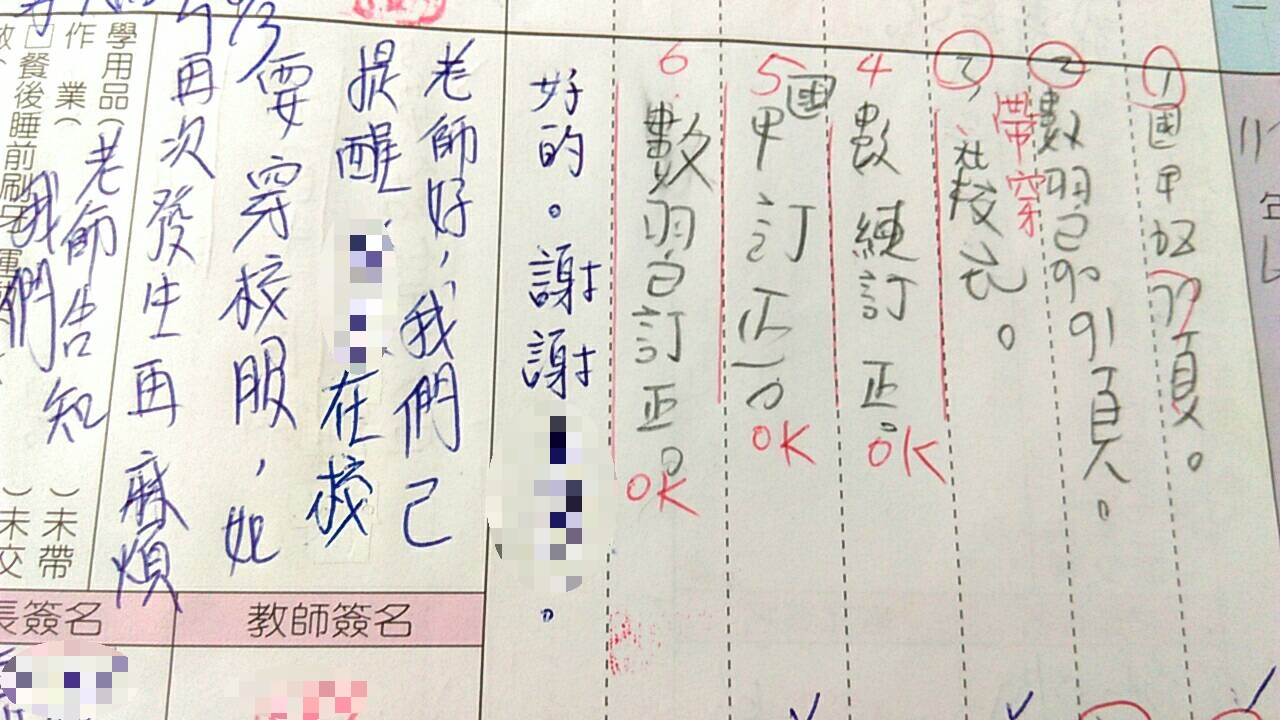 ①國甲
②數習已90 91頁。
帶穿
③校衣。
4數練訂正。OK
5國甲訂正。OK
6數習已訂正。OK
好的。謝謝
。
老師好,我們已
提醒
在校
要穿校服,如
再次發生再麻煩
老師告知
我們
學用品(
)未帶
作業(
)未交
餐後睡前刷牙
長簽名
教師簽名